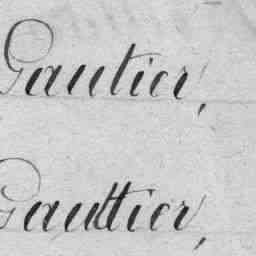 Gautier,
Gauttier,